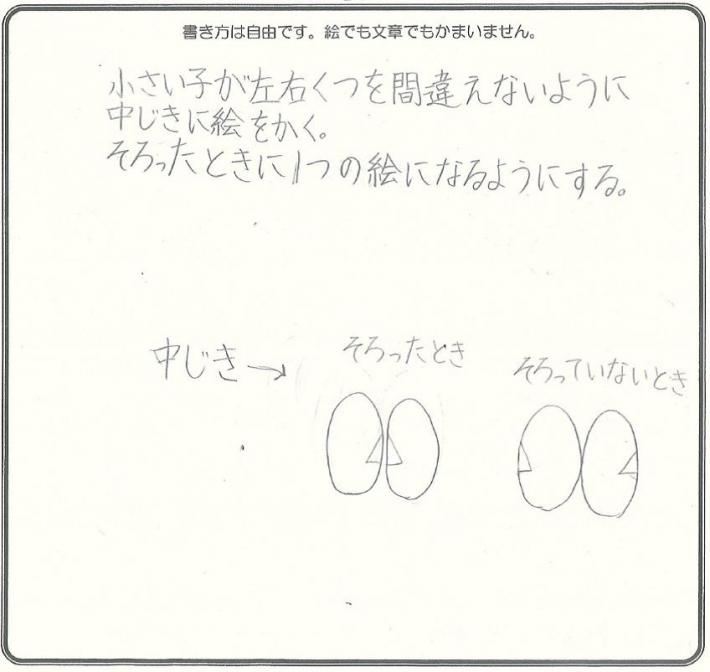 書き方は自由です。絵でも文章でもかまいません。
小さい子が左右くつを間違えないように
中じきに絵をかく。
そろったときに1つの絵になるようにする。
中じき→
そろったとき
そろっていないとき